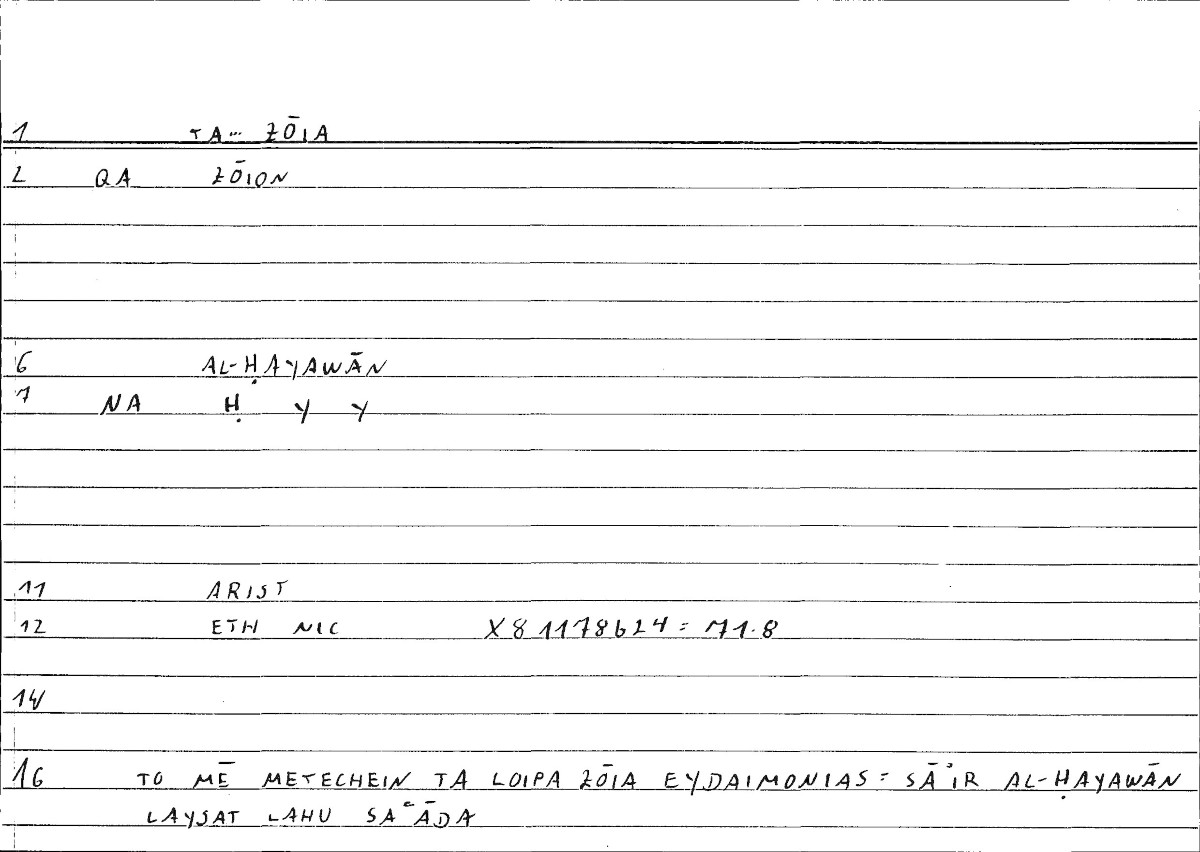 1 TA... ZŌIA
2 QA ZŌION
6 AL-ḤAYAWĀN
7 NA Ḥ Y Y
11 ARIST
12 ETH NIC X8 1178b24 = 71.8
14
16 TO MĒ METECHEIN TA LOIPA ZŌIA EYDAIMONIAS = SĀʾIR AL-ḤAYAWĀN
LAYSAT LAHU SAʿĀDA